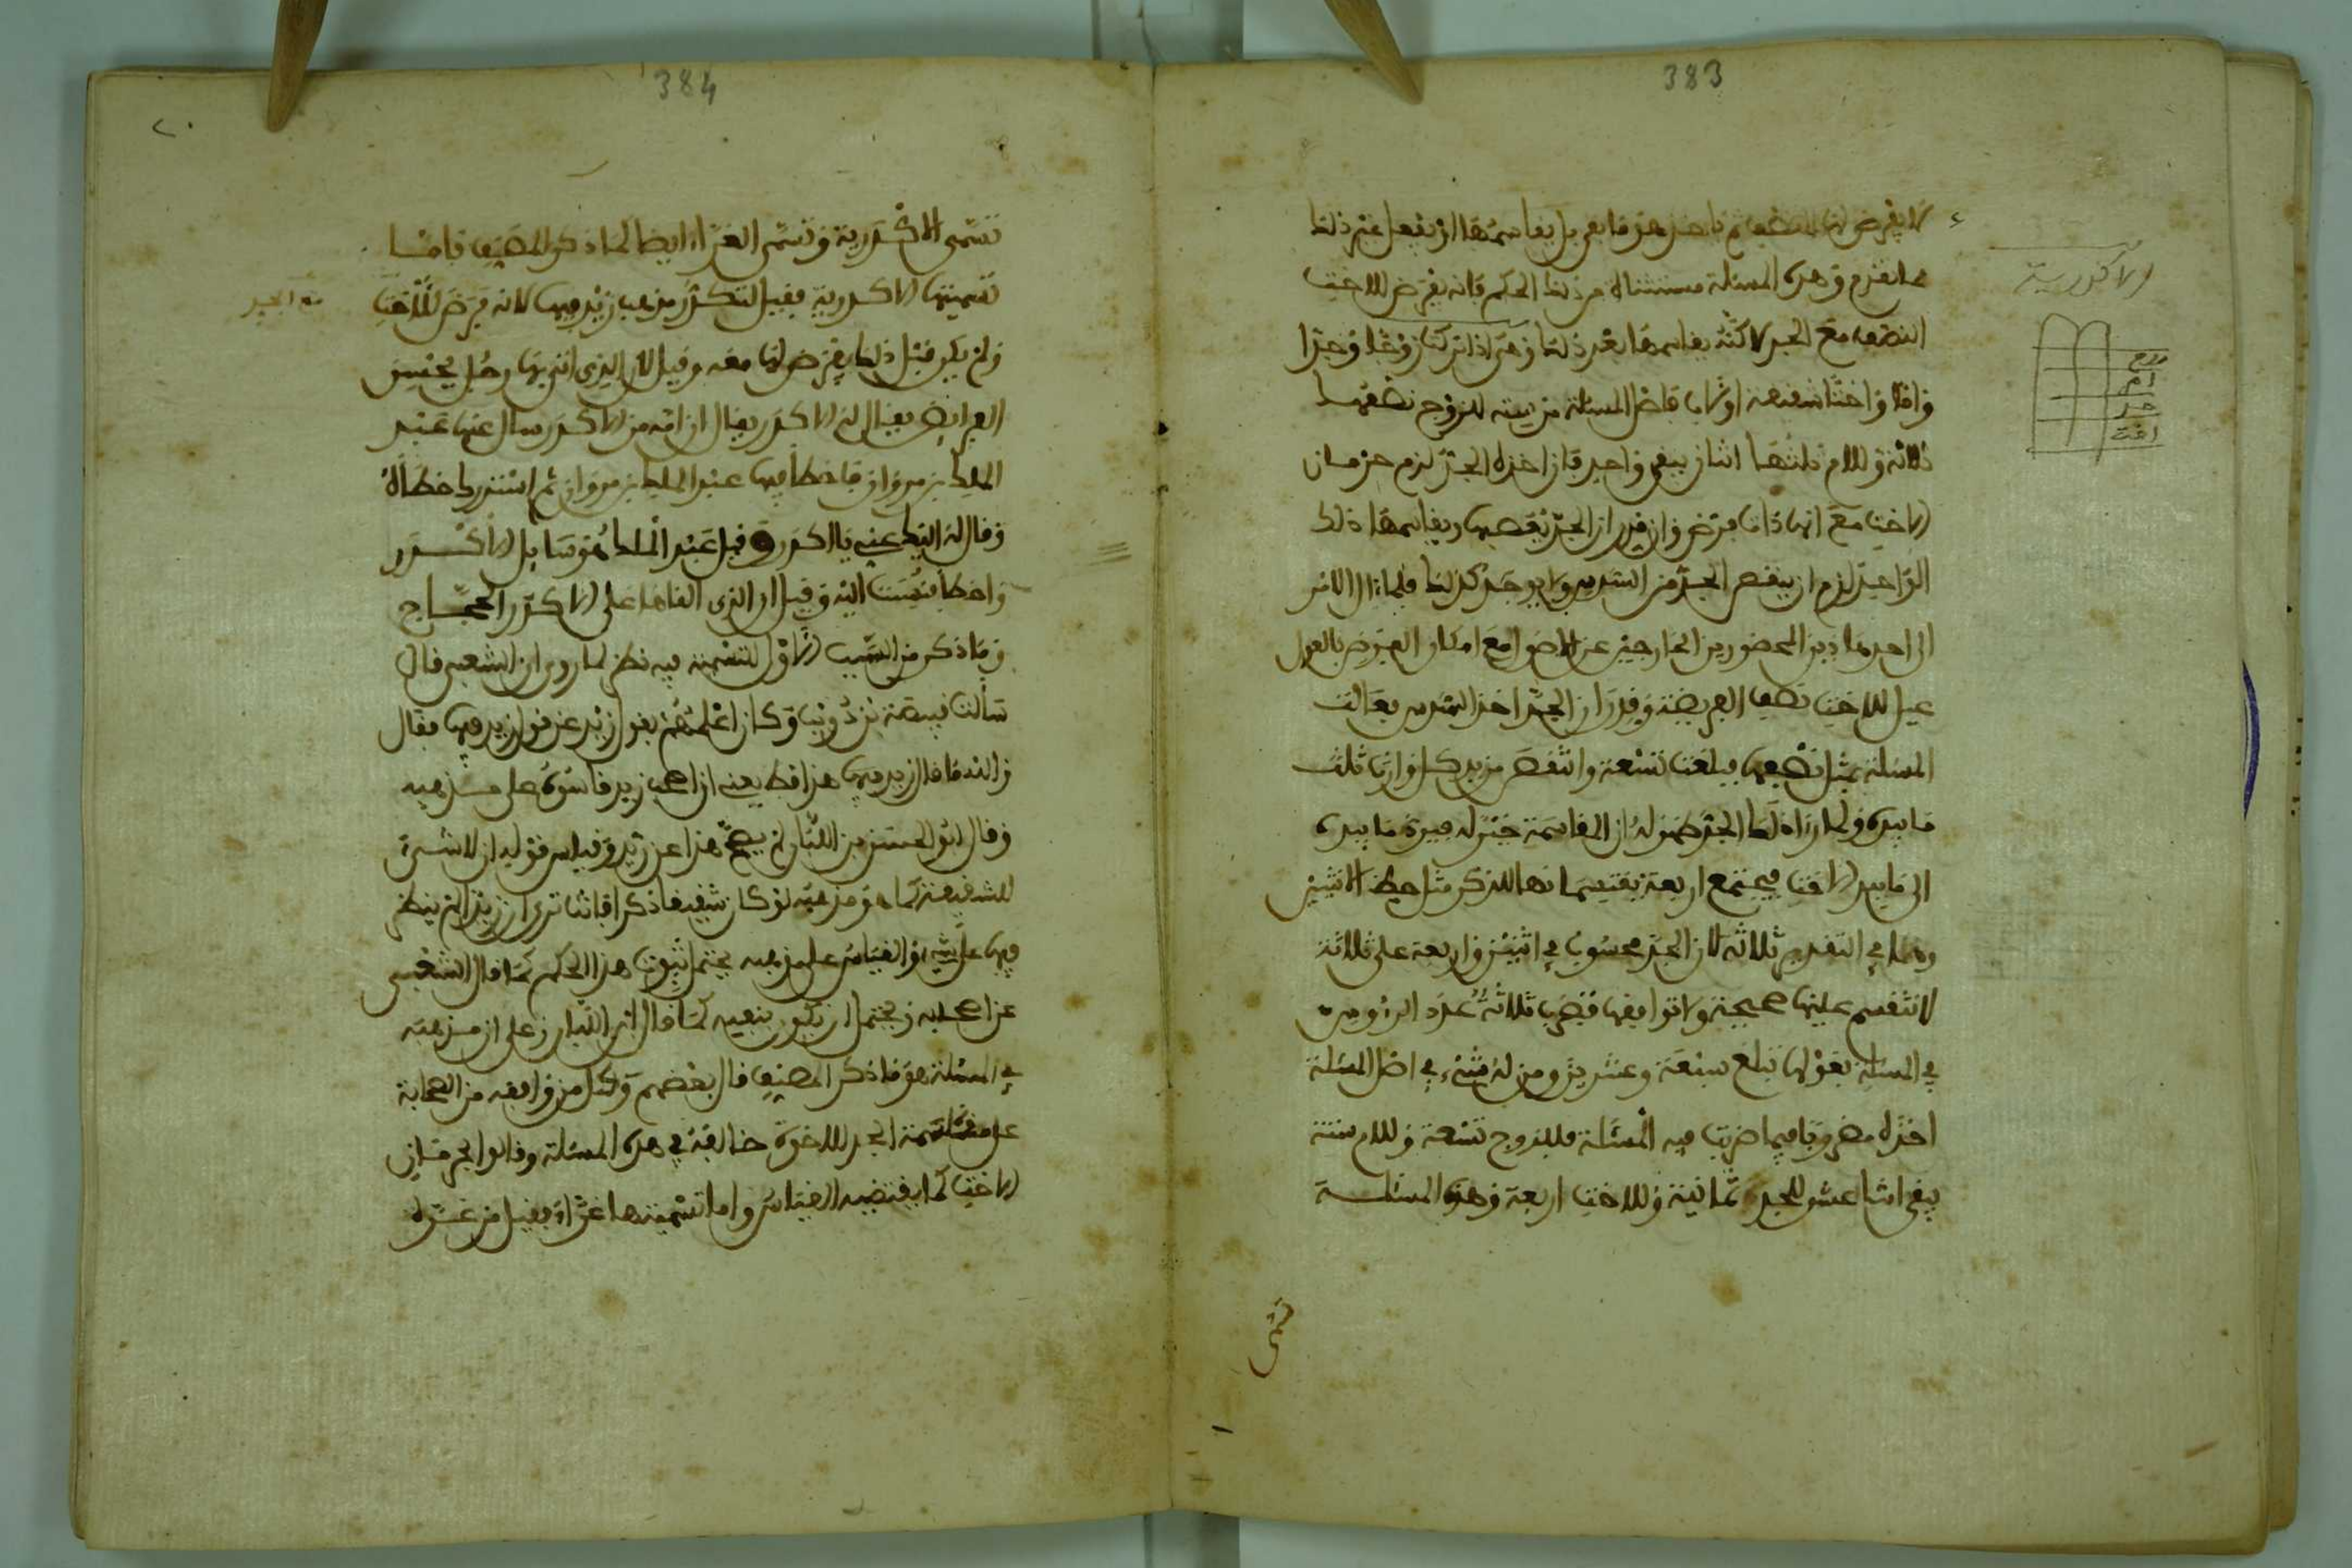 383
لا يفرض لها النصف ثم تاخذ هو ما بقي بل يقاسمها او يفعل غير ذلك
مما تقدم وهذه المسئلة مستثناة من ذلك الحكم فانه يفرض للاخت
النصف مع الجد لاكنه يقاسمها بعد ذلك وهي اذا تركت زوجا وجدا
واما واختا شقيقة او لاب فاصل المسئلة من ستة للزوج نصفها
ثلاثة وللام ثلثها اثنان يبقى واحد فان اخذه الجد لزم حرمان
الاخت مع انها ذات فرض وان قدر ان الجد يعصبها ويقاسمها ذلك
الواحد لزم ان ينقص الجد من السدس ولا يوجد كذلك فلما ال الامر
الى احد هاذين المحضورين الخارجين عن الاصول مع امكان الفرض بالعول
عيل للاخت بنصف الفريضة وقدر ان الجد اخذ السدس فعالت
المسئلة بمثل نصفها فبلغت تسعة وانتقص من يد كل وارث ثلث
ما بيده ولما راى ذلك الجد ظهر له ان المقاسمة خير له فيرد ما بيده
الى ما بيد الاخت فيجتمع اربعة يقتسمانها للذكر مثل حظ الانثيين
وهما في التقدير ثلاثة لان الجد محسوب في اثنين واربعة على ثلاثة
لا تنقسم عليها صحيحة ولا توافقها فتضرب ثلاثة عدد الرءوس
في المسئلة بعولها تبلغ سبعة وعشرين ومن له شيء في اصل المسئلة
اخذه مضروبا فيما ضربت فيه المسئلة فللزوج تسعة وللام ستة
يبقى اثنا عشر للجد ثمانية وللاخت اربعة وهذه المسئلة
تسمى
الاكدرية
زوج
ام
جد
اخت
384
تسمى الاكدرية وتسمى الغراء ايضا كما ذكر المصنف فاما
تسميتها الاكدرية فقيل لتكدر مذهب زيد فيها لانه فرض للاخت
مع الجد
ولم يكن قبل ذلك يفرض لها معه وقيل لان الذي افتى بها رجل يحسن
الفرايض يقال له الاكدر يقال ان امه من الاكدر سال عنها عبد
الملك بن مروان فاخطا فيها عبد الملك بن مروان ثم استدرك خطاه
وقال له اليك عني يا اكدر وقيل عبد الملك هو سايل الاكدر
واخطا فنسبت اليه وقيل ان الذي القاها على الاكدر الحجاج
وما ذكر من السبب الاول للتسمية فيه نظر لما روي ان الشعبي قال
سالت قبيصة بن ذويب وكان اعلمهم بقول زيد عن قول زيد فيها فقال
والله ما قال زيد فيها هذا قط يعني ان اصحاب زيد قاسوه على مذهبه
وقال ابو الحسن بن اللبان لم يصح هذا عن زيد وقياس قوله ان لا شيء
للشقيقة كما هو مذهبه لو كان شقيقا ذكرا فانت ترى ان زيدا لم ينظر
فيها على شيء والقياس على مذهبه يحتمل ثبوت هذا الحكم كما قال الشعبي
عن اصحابه ويحتمل ان يكون بنفيه كما قال ابن اللبان وعلى ان مذهبه
في المسئلة هو ما ذكر المصنف قال بعضهم وكل من وافقه من الصحابة
على مقاسمة الجد للاخوة خالفه في هذه المسئلة وقالوا بحرمان
الاخت كما يقتضيه القياس واما تسميتها غراء فقيل من غرة